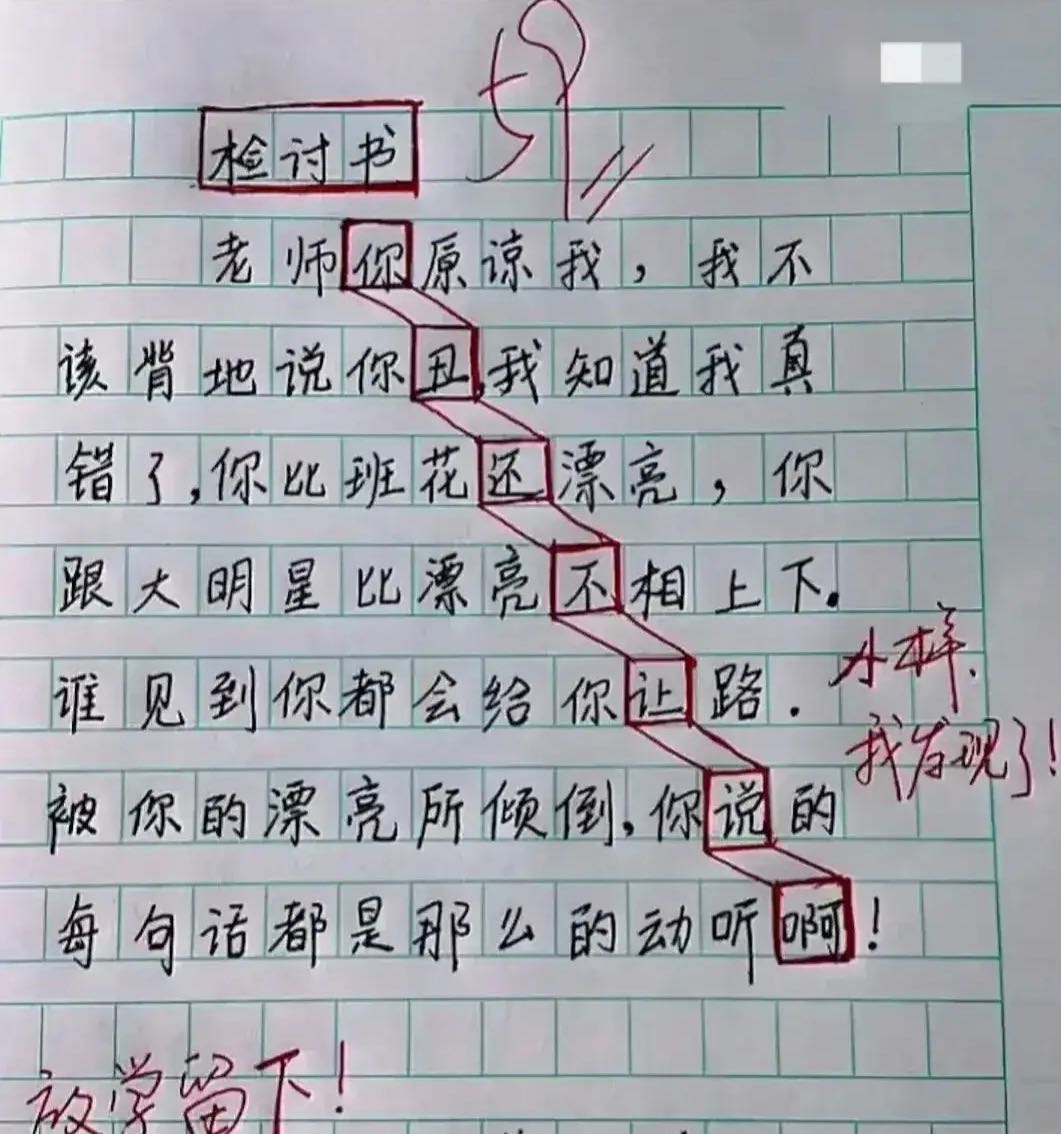 59
检讨书
老师你原谅我，我不
该背地说你丑，我知道我真
错了，你比班花还漂亮，你
跟大明星比漂亮不相上下。
谁见到你都会给你让路.
被你的漂亮所倾倒，你说的
每句话都是那么的动听啊！
小样.
我发现了！
放学留下！